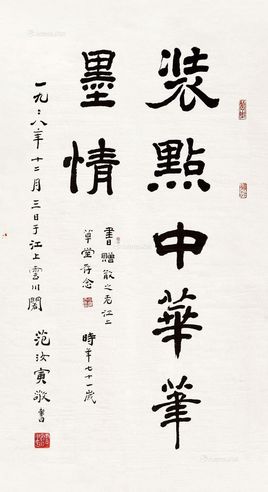 裝點中華筆
墨情
書贈之老江二
草堂存念 時年七十一歲
一九八八年十二月三日于江上雪川閣 范汝寅敬書